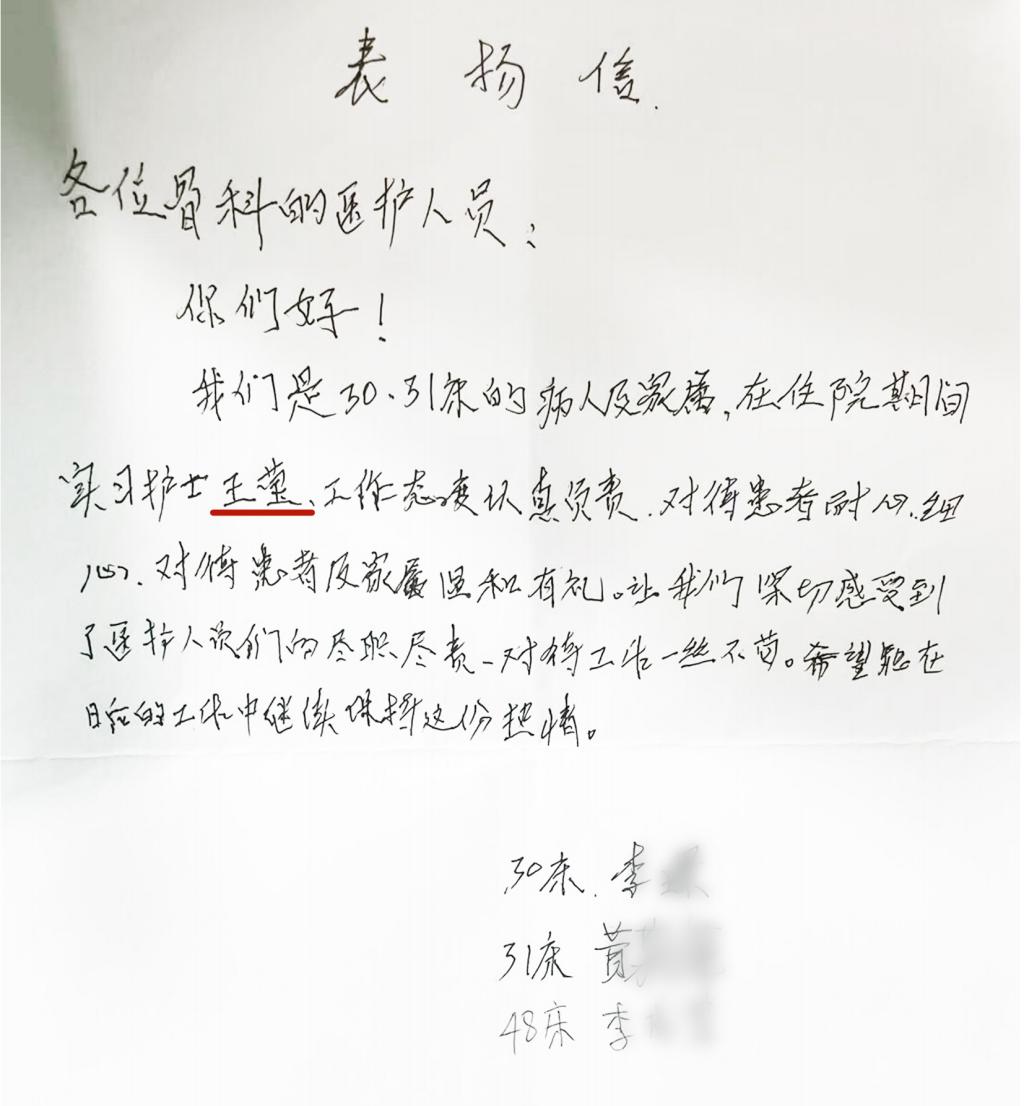 表扬信.
各位骨科的医护人员:
你们好!
我们是30、31床的病人及家属,在住院期间
实习护士王莹、工作态度认真负责、对待患者耐心、细
心、对待患者及家属温和有礼。让我们深切感受到
了医护人员们的尽职尽责、对待工作一丝不苟。希望能在
日后的工作中继续保持这份热情。
30床、李
31床 黄
48床 李